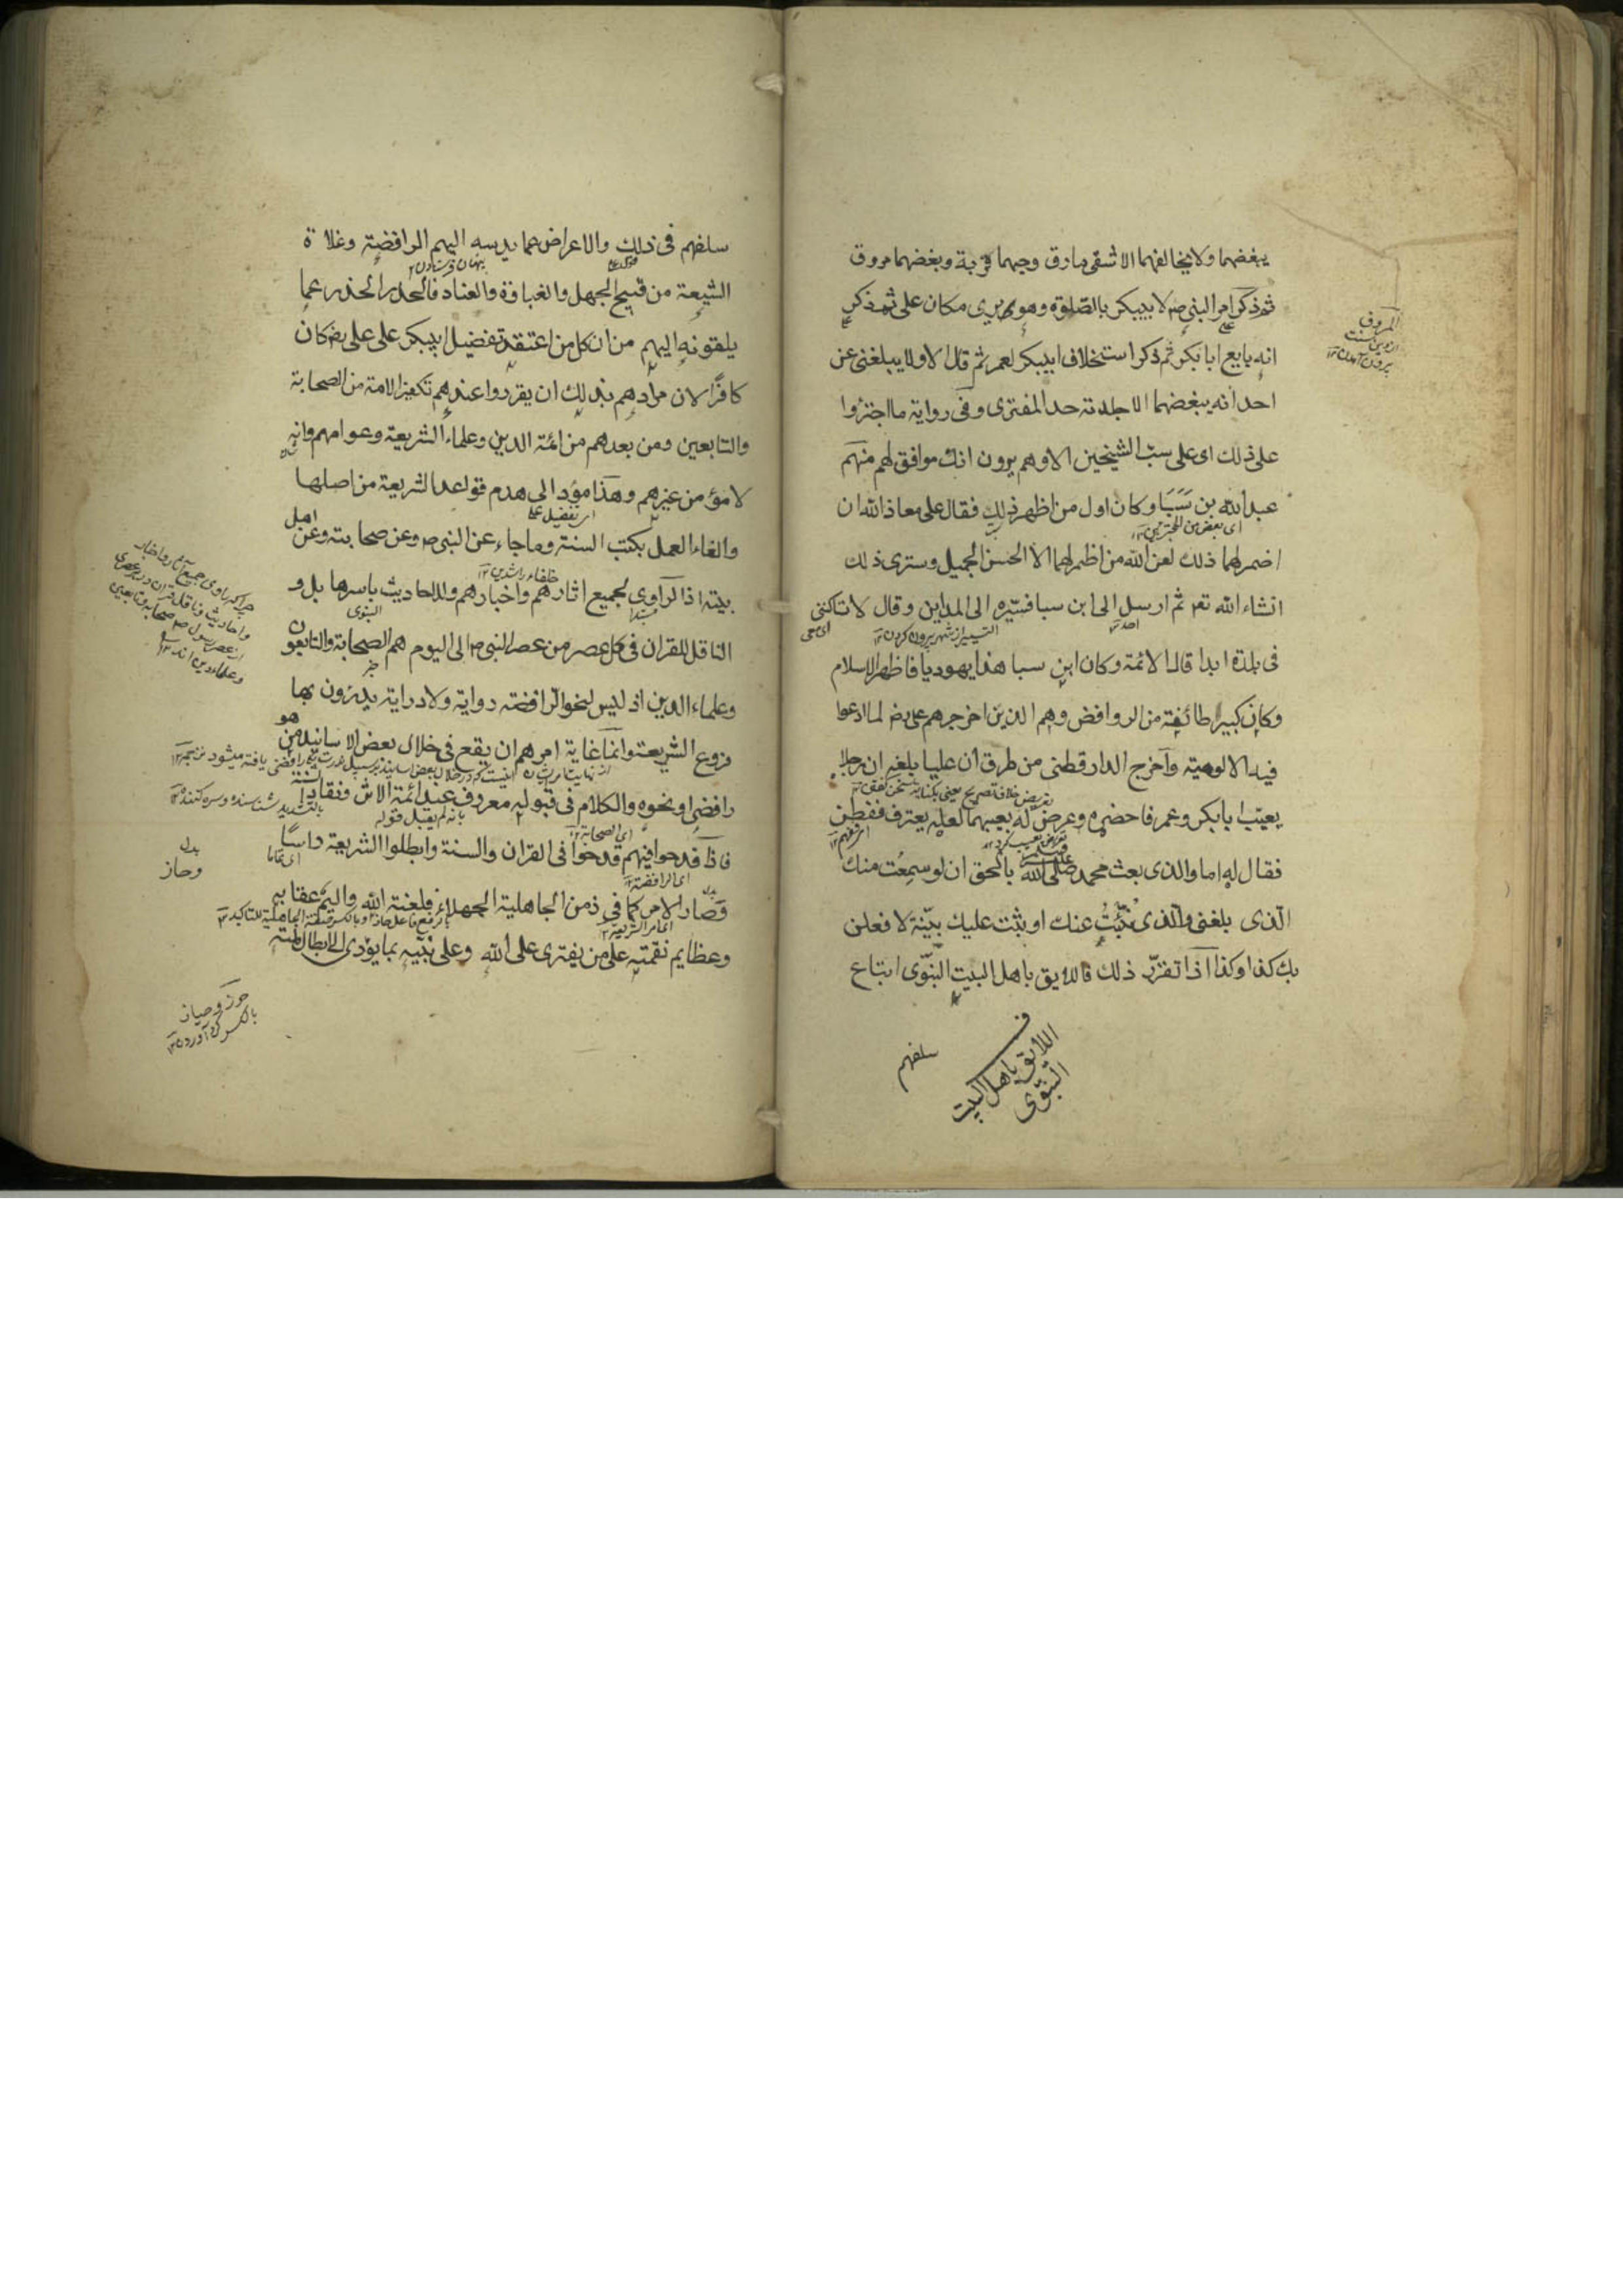 يبغضهما ولا يخالفهما الا شقى مارق وحبهما قربة وبغضهما مروق
ثم ذكر امر النبي ص لابيبكر بالصلوة وهو يرى مكان على ثم ذكر
انه بايع ابابكر ثم ذكر استخلاف ابيبكر لعمر ثم قال الا ولا يبلغنى عن
احد انه يبغضهما الا جلدته حد المفترى وفى رواية ما اجترؤا
على ذلك اى على سب الشيخين الا وهم يرون انك موافق لهم منهم
عبد الله بن سبا وكان اول من اظهر ذلك فقال على معاذ الله ان
اى بعض من المجترئين ١٢
اضمر لهما ذلك لعن الله من اضمر لهما الا الحسن الجميل وسترى ذلك
انشاء الله تع ثم ارسل الى ابن سبا فسيره الى المداين وقال لا تساكننى
التسيير از شهر بيرون كردن ١٢
فى بلدة ابدا قال الائمة وكان ابن سبا هذا يهوديا فاظهر الاسلام
وكان كبير طائفة من الروافض وهم الذين اخرجهم على رض لما ادعوا
فيه الالوهية وآخرج الدارقطنى من طرق ان عليا بلغه ان رجلا
يعيب ابابكر وعمر فاحضره وعرض له بعيبهما لعله يعترف ففطن
فقال له اما والذى بعث محمد صلى الله بالحق ان لو سمعت منك
الذى بلغنى والذى نبئت عنك او يثبت عليك بينة لافعلن
بك كذا وكذا اذا تقرر ذلك فاللايق باهل البيت النبوى اتباع
فاللايق باهل البيت
النبوى
سلفهم
المروق
از دين
بيرون آمدن ١٢
سلفهم فى ذلك والاعراض عما يدسه اليهم الرافضة وغلاة
الشيعة من قبيح الجهل والغباوة والعناد فالحذر الحذر عما
يلقونه اليهم من ان كل من اعتقد تفضيل ابيبكر على على رض كان
كافرا لان مرادهم بذلك ان يقرروا عندهم تكفير الامة من الصحابة
والتابعين ومن بعدهم من ائمة الدين وعلماء الشريعة وعوامهم وانه
لا مؤمن غيرهم وهذا مؤد الى هدم قواعد الشريعة من اصلها
والغاء العمل بكتب السنة وما جاء عن النبى ص وعن صحابته وعن اهل
خلفاء راشدين ١٢
بيته اذ الراوى لجميع اثارهم واخبارهم وللاحاديث باسرها بل و
مبتدا
النبوى
الناقل للقران فى كل عصر من عصر النبى ص الى اليوم هم الصحابة والتابعون
خبر
وعلماء الدين اذ ليس لنحو الرافضة رواية ولا دراية يدرون بها
فروع الشريعة وانما غاية امرهم ان يقع فى خلال بعض الاسانيد من هو
رافضى او نحوه والكلام فى قبوله معروف عند ائمة الاثر ونقاد السنة
بانه لم يقبل قوله
اى الصحابة ١٢
فاذا قدحوا فيهم قدحوا فى القران والسنة وابطلوا الشريعة راسا
اى تماما
اى الرافضة ١٢
وصار الامر كما فى زمن الجاهلية الجهلاء فلعنة الله واليم عقابه
وعظايم نقمته على من يفترى على الله وعلى نبيه بما يؤدى الى ابطال ملته
چرا كه راوى جميع آثار واخبار
واحاديث وناقل قران در هر عصرى
از عصر رسول ص صحابه وتابعين
وعلماء دين اند ١٢
بدل
وحاز
حوز وحياز
بالكسر گرد آوردن ١٢